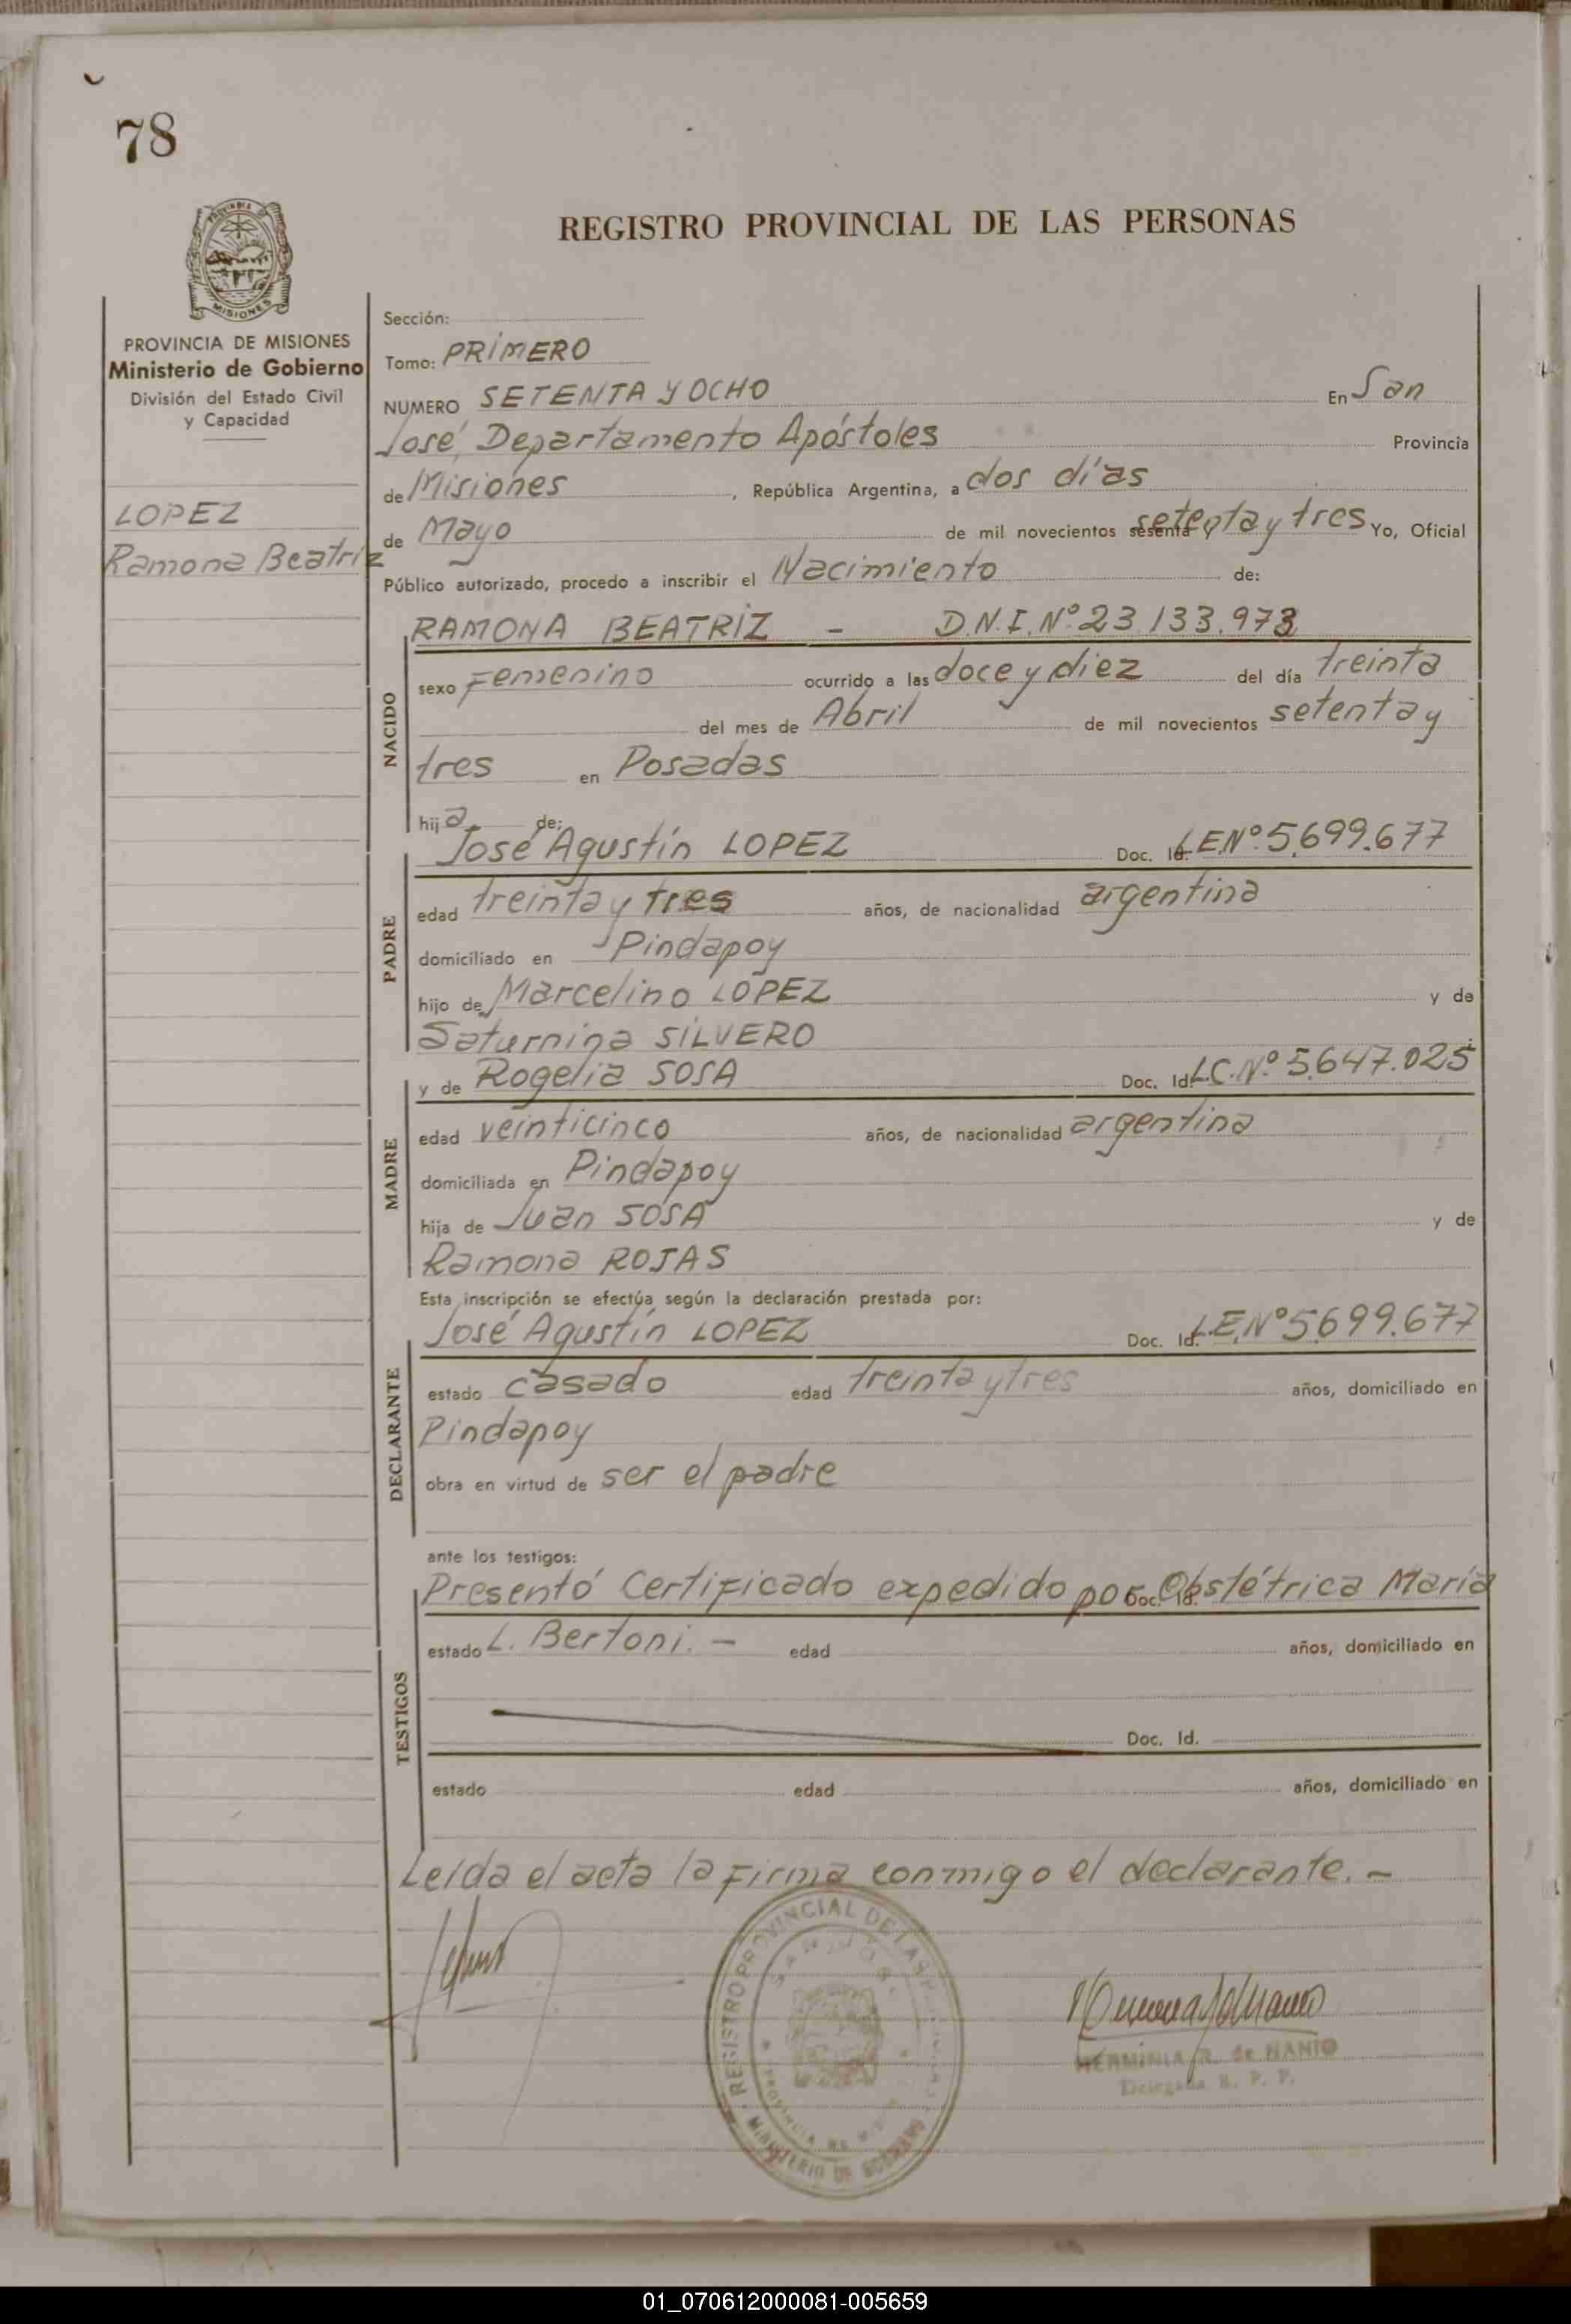 78
REGISTRO PROVINCIAL DE LAS PERSONAS
PROVINCIA DE MISIONES
Ministerio de Gobierno
División del Estado Civil
y Capacidad
LOPEZ
Ramona Beatriz
Sección:
Tomo: PRIMERO
NUMERO SETENTA Y OCHO En San
José, Departamento Apóstoles Provincia
de Misiones, República Argentina, a dos días
de Mayo de mil novecientos sesenta y setenta y tres Yo, Oficial
Público autorizado, procedo a inscribir el Nacimiento de:
NACIDO
RAMONA BEATRIZ - D.N.I. Nº 23.133.973
sexo Femenino ocurrido a las doce y diez del día treinta
del mes de Abril de mil novecientos setenta y
tres en Posadas
hija de:
PADRE
José Agustín LOPEZ Doc. Id. L.E.Nº 5.699.677
edad treinta y tres años, de nacionalidad argentina
domiciliado en Pindapoy
hijo de Marcelino LOPEZ y de
Saturnina SILVERO
MADRE
y de Rogelia SOSA Doc. Id. L.C.Nº 5.647.025
edad veinticinco años, de nacionalidad argentina
domiciliada en Pindapoy
hija de Juan SOSA y de
Ramona ROJAS
Esta inscripción se efectúa según la declaración prestada por:
DECLARANTE
José Agustín LOPEZ Doc. Id. L.E.Nº 5.699.677
estado casado edad treinta y tres años, domiciliado en
Pindapoy
obra en virtud de ser el padre
ante los testigos:
TESTIGOS
Presentó Certificado expedido por Doc. Id. Obstétrica María
estado L. Bertoni. - edad años, domiciliado en
Doc. Id.
estado edad años, domiciliado en
Leída el acta la firma conmigo el declarante. -
REGISTRO PROVINCIAL DE LAS
MINISTERIO DE GOBIERNO
HERMINIA R. de HANIO
Delegada R. P. P.
01_070612000081-005659